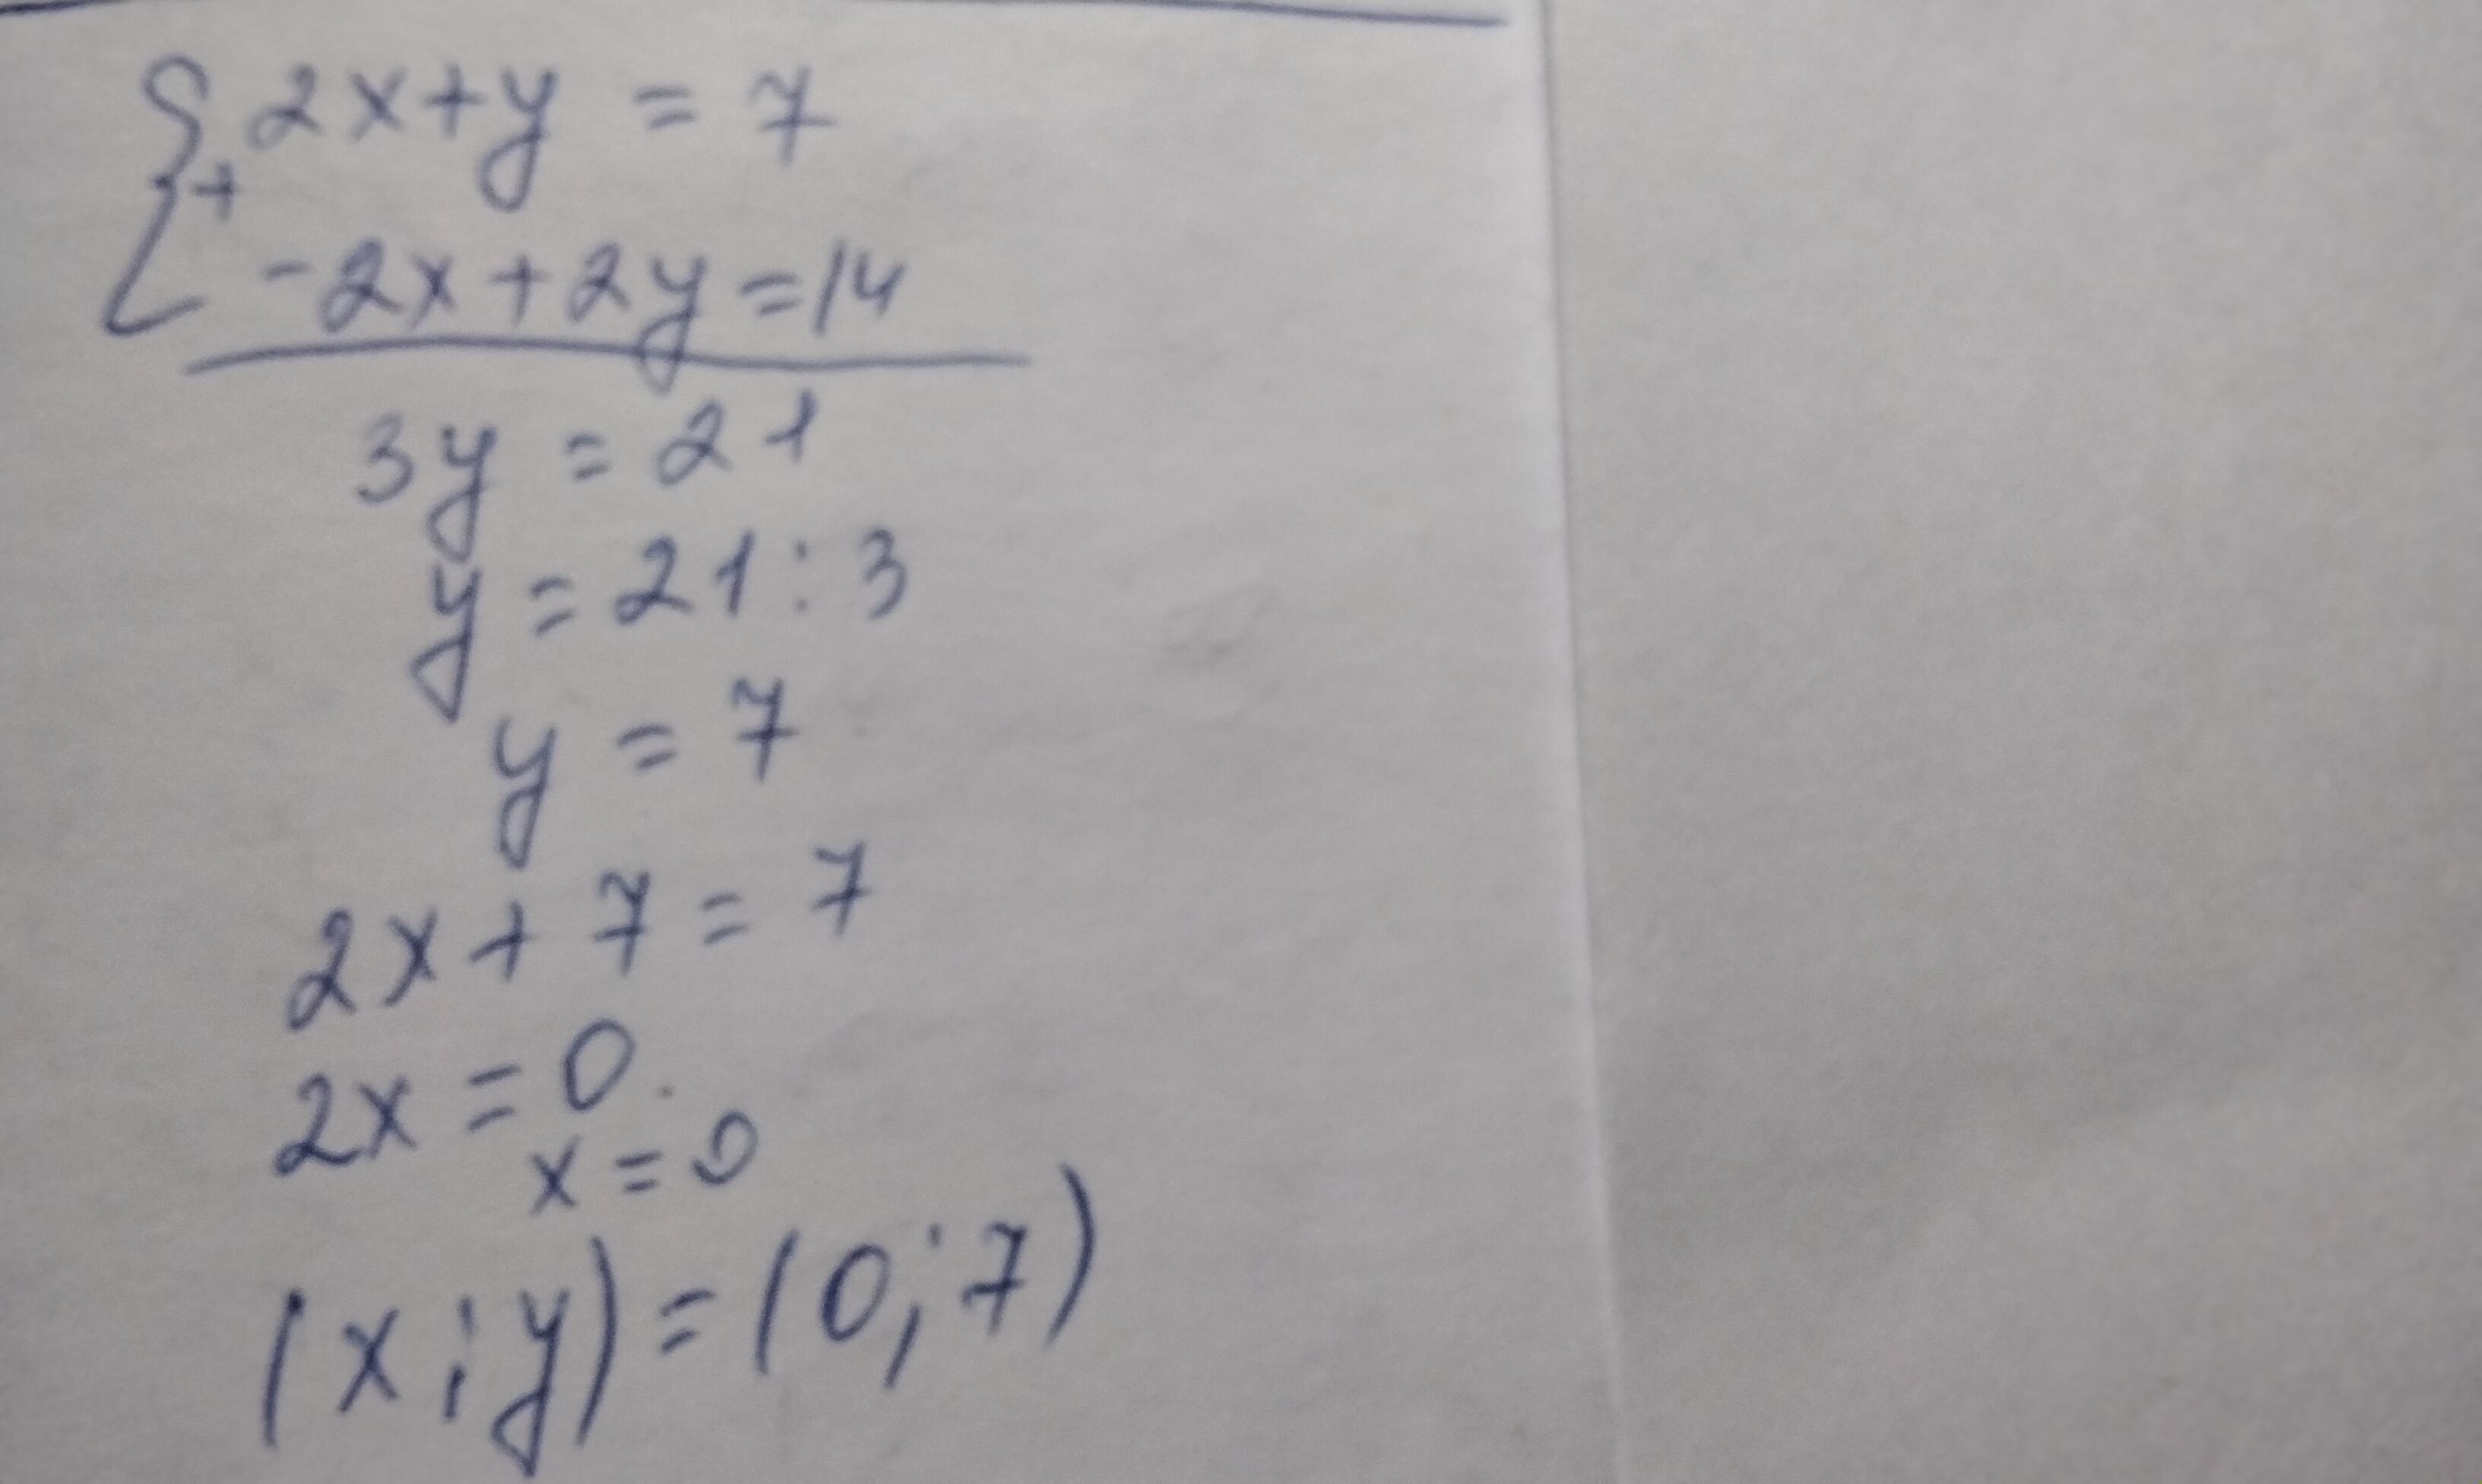 { 2x+y = 7
+
-2x+2y=14
3y = 21
y = 21:3
y = 7
2x+7=7
2x=0.
x=0
(x;y)=(0;7)